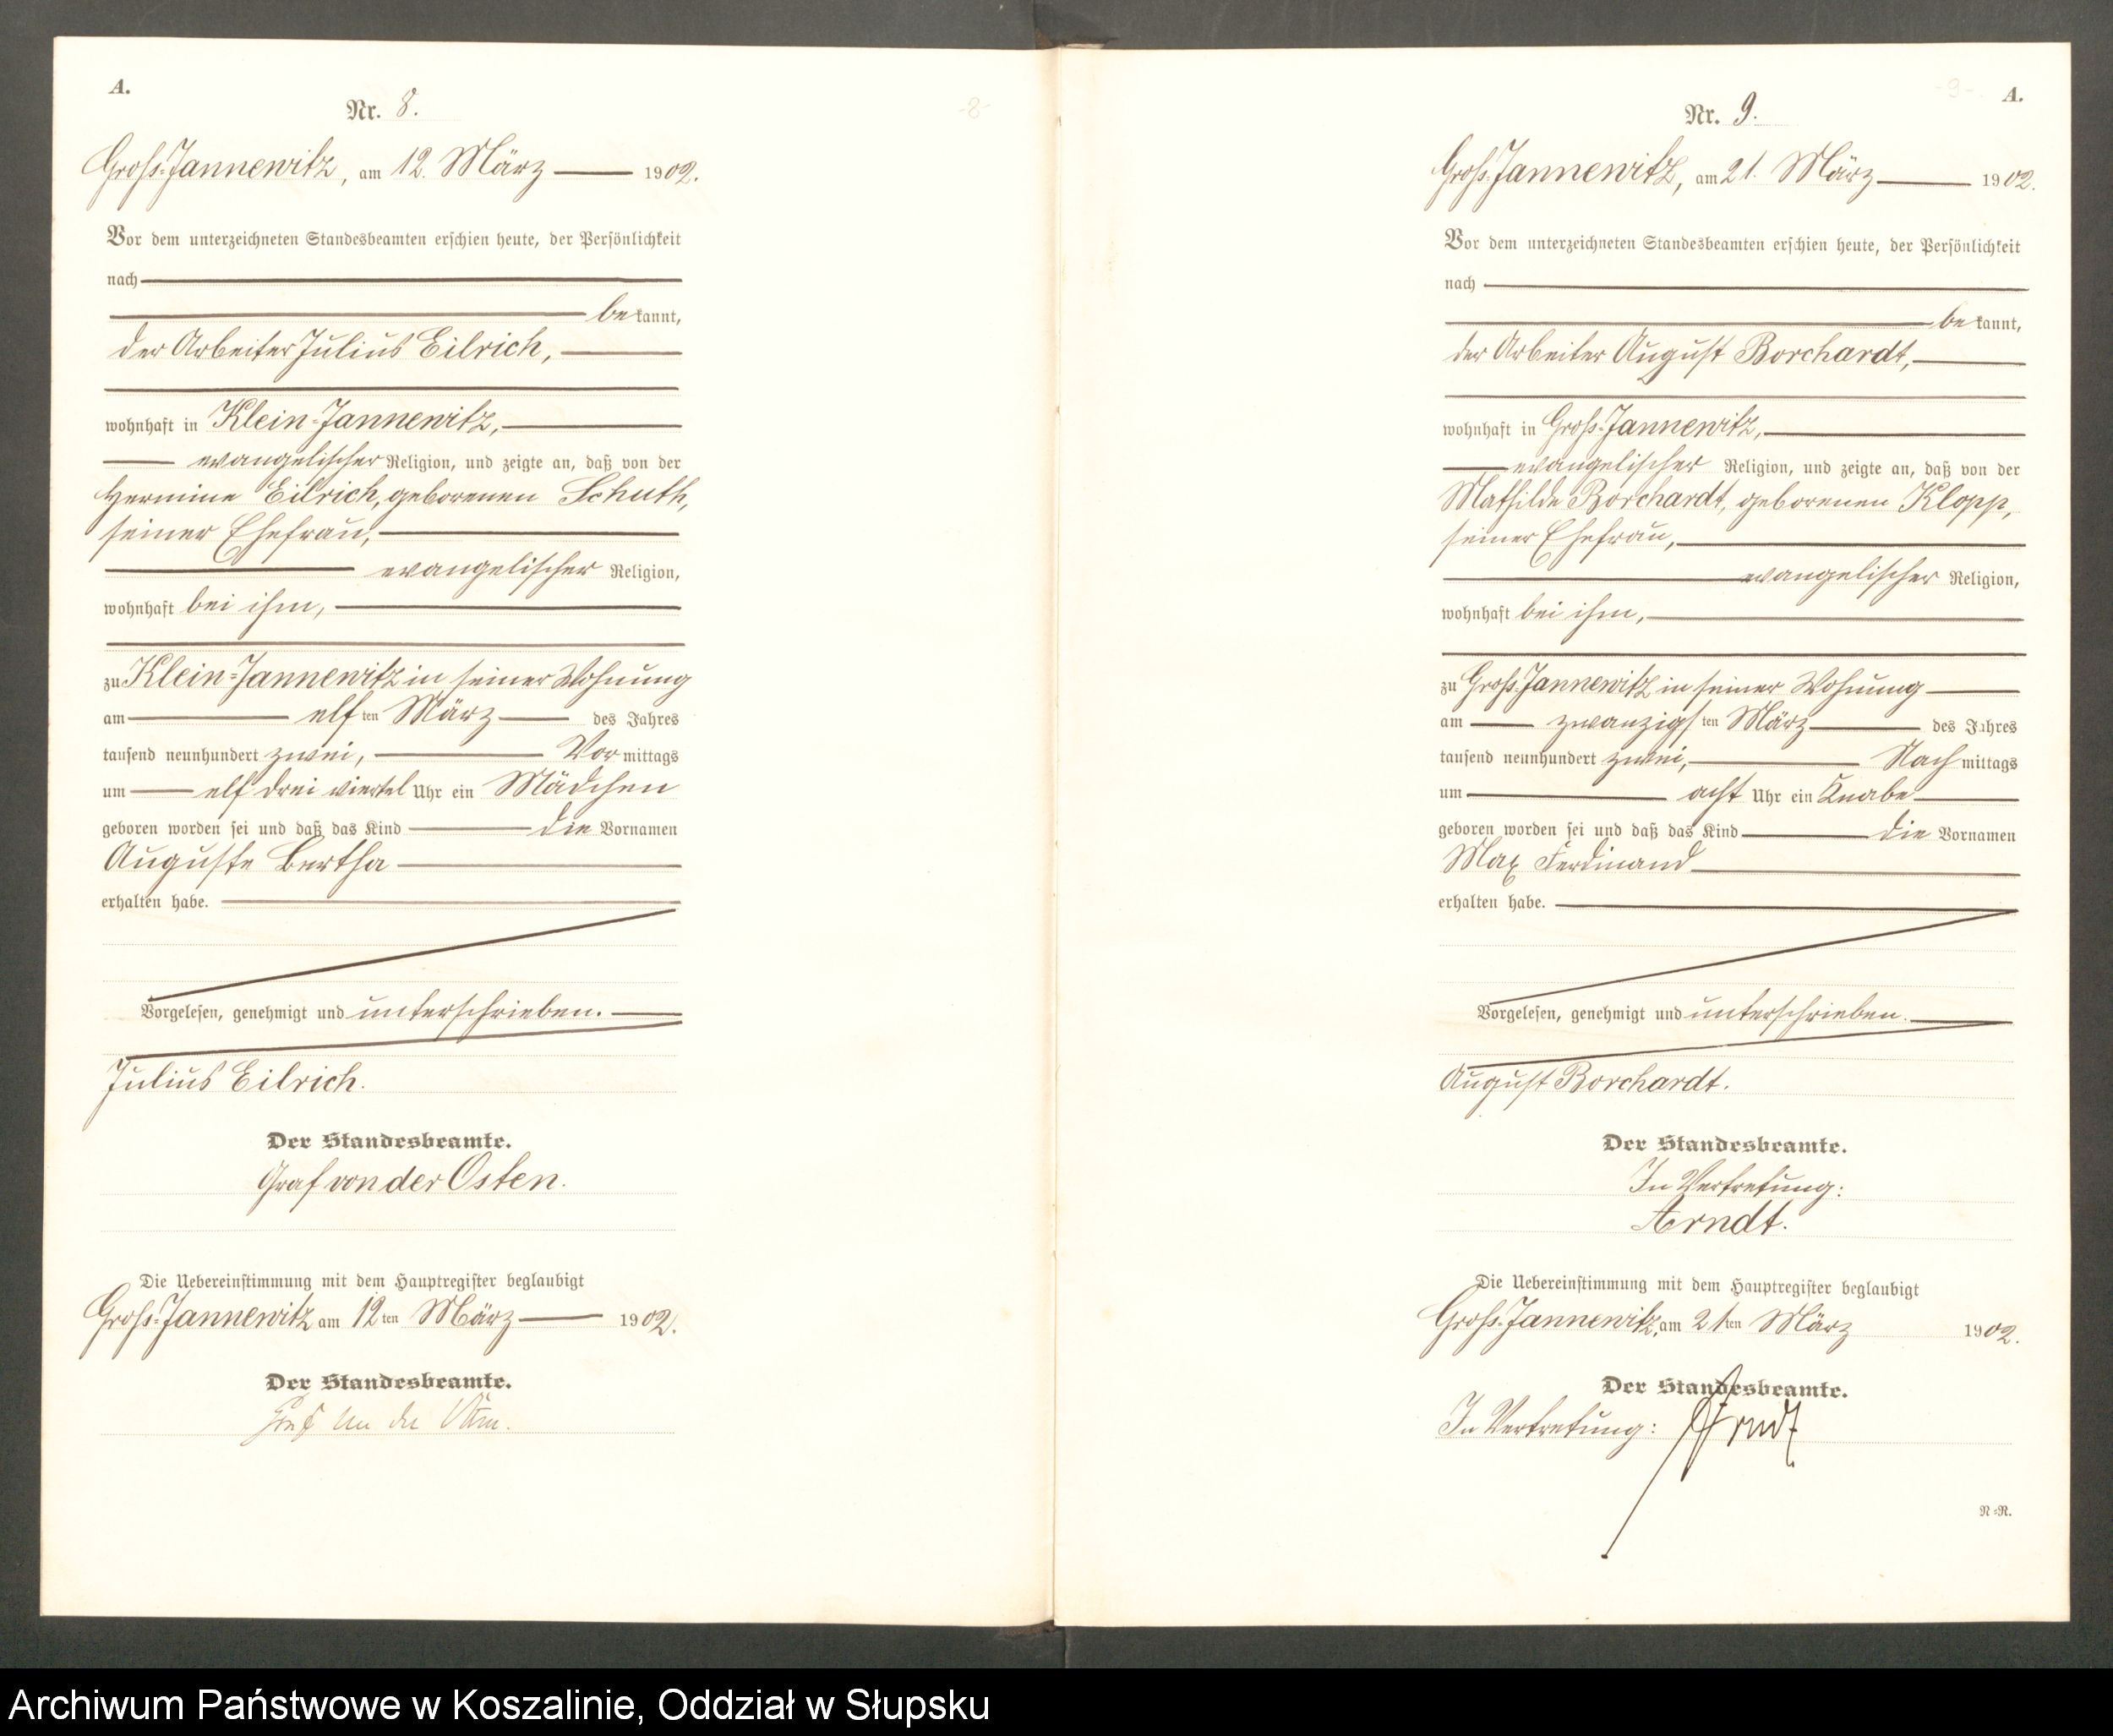 A.
Nr. 8.
-8-
Groß-Jannewitz, am 12. März 1902.
Vor dem unterzeichneten Standesbeamten erschien heute, der Persönlichkeit
nach
bekannt,
der Arbeiter Julius Eilrich,
wohnhaft in Klein-Jannewitz,
evangelischer Religion, und zeigte an, daß von der
Hermine Eilrich, geborenen Schuth,
seiner Ehefrau,
evangelischer Religion,
wohnhaft bei ihm,
zu Klein-Jannewitz in seiner Wohnung
am elften März des Jahres
tausend neunhundert zwei, Vormittags
um elf drei viertel Uhr ein Mädchen
geboren worden sei und daß das Kind die Vornamen
Auguste Bertha
erhalten habe.
Vorgelesen, genehmigt und unterschrieben.
Julius Eilrich.
Der Standesbeamte.
Graf von der Osten.
Die Uebereinstimmung mit dem Hauptregister beglaubigt
Groß-Jannewitz am 12ten März 1902.
Der Standesbeamte.
Graf von der Osten.
-9-
A.
Nr. 9.
Groß-Jannewitz, am 21. März 1902.
Vor dem unterzeichneten Standesbeamten erschien heute, der Persönlichkeit
nach
bekannt,
der Arbeiter August Borchardt,
wohnhaft in Groß-Jannewitz,
evangelischer Religion, und zeigte an, daß von der
Mathilde Borchardt, geborenen Klopp,
seiner Ehefrau,
evangelischer Religion,
wohnhaft bei ihm,
zu Groß-Jannewitz in seiner Wohnung
am zwanzigsten März des Jahres
tausend neunhundert zwei, Nachmittags
um acht Uhr ein Knabe
geboren worden sei und daß das Kind die Vornamen
Max Ferdinand
erhalten habe.
Vorgelesen, genehmigt und unterschrieben.
August Borchardt.
Der Standesbeamte.
In Vertretung:
Arndt.
Die Uebereinstimmung mit dem Hauptregister beglaubigt
Groß-Jannewitz, am 21ten März 1902.
Der Standesbeamte.
In Vertretung: Arndt
N=R.
Archiwum Państwowe w Koszalinie, Oddział w Słupsku